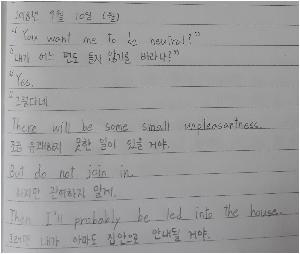 2018년 9월 10일 (월)
"You want me to be neutral?"
"내가 어느 편도 들지 않기를 바라나?"
"Yes.
"그렇다네.
There will be some small unpleasantness.
조금 유쾌하지 못한 일이 있을 거야.
But do not join in.
하지만 관여하지 말게.
Then I'll probably be led into the house.
그러면 내가 아마도 집안으로 안내될 거야.